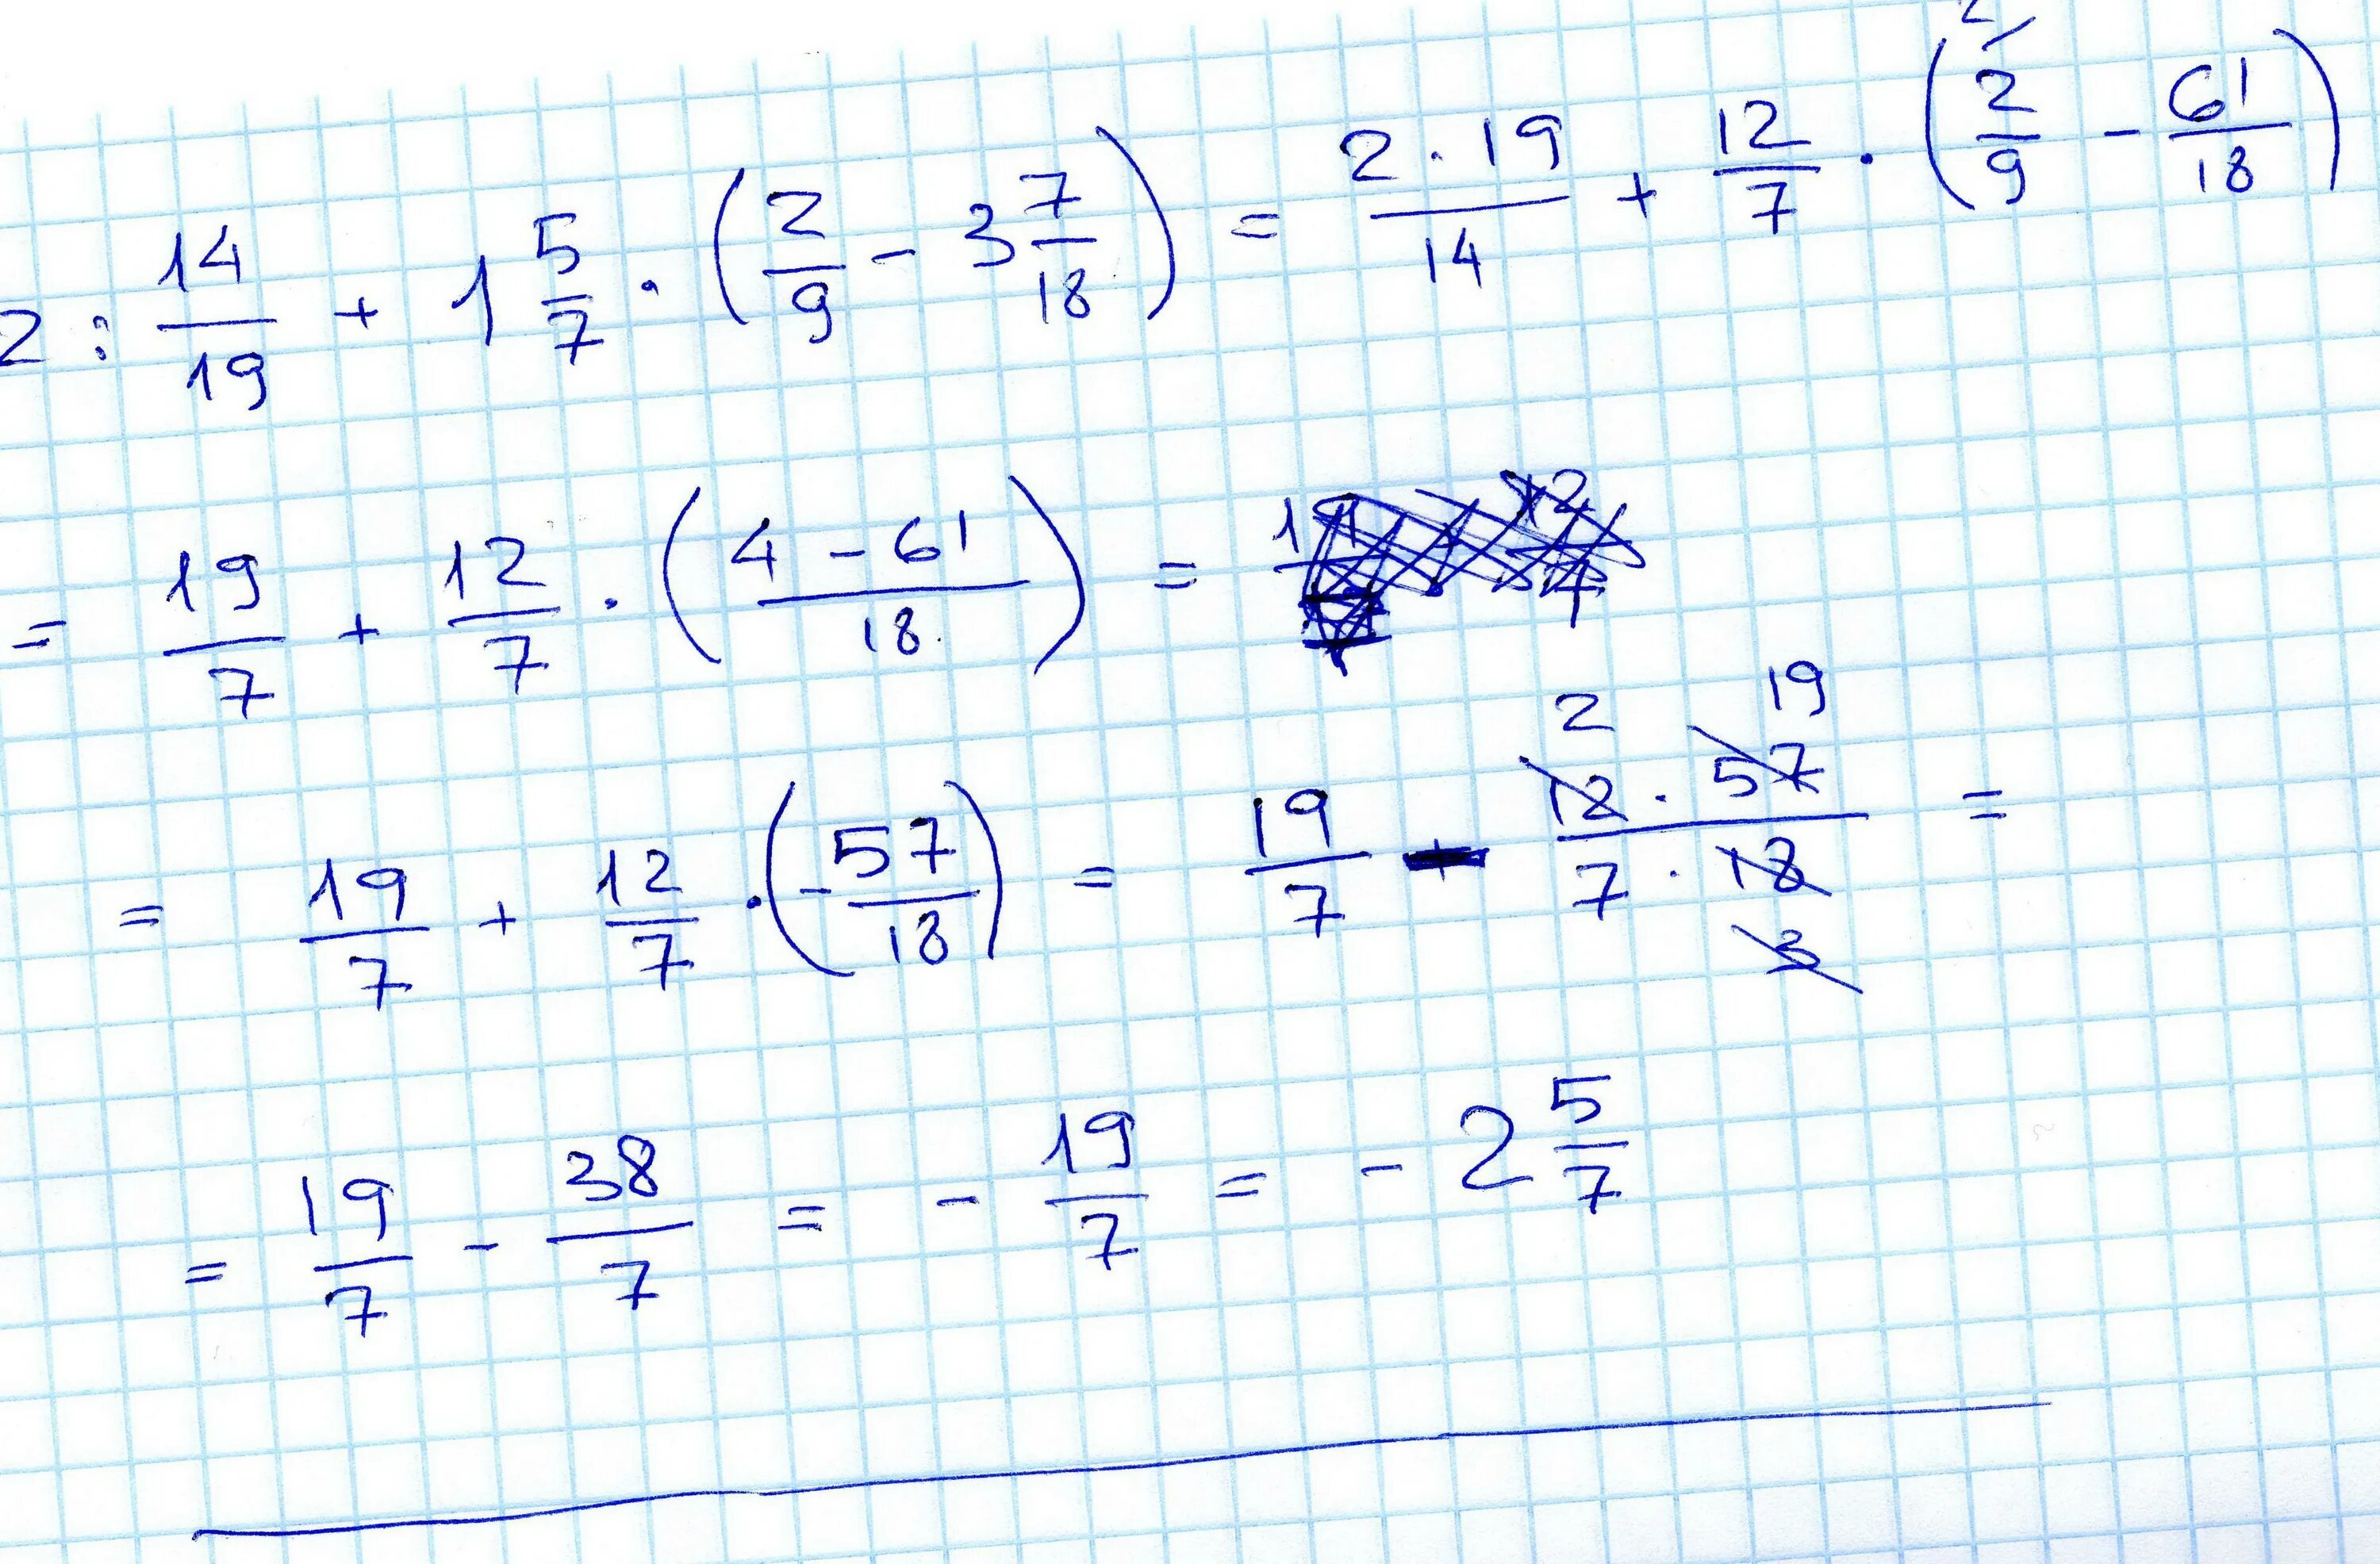 2 : 14/19 + 1 5/7 · (2/9 - 3 7/18) = 2 · 19/14 + 12/7 · (2/9 - 61/18)
= 19/7 + 12/7 · (4 - 61/18) =
= 19/7 + 12/7 · (-57/18) = 19/7 - 12 · 57/7 · 18 =
= 19/7 - 38/7 = - 19/7 = - 2 5/7